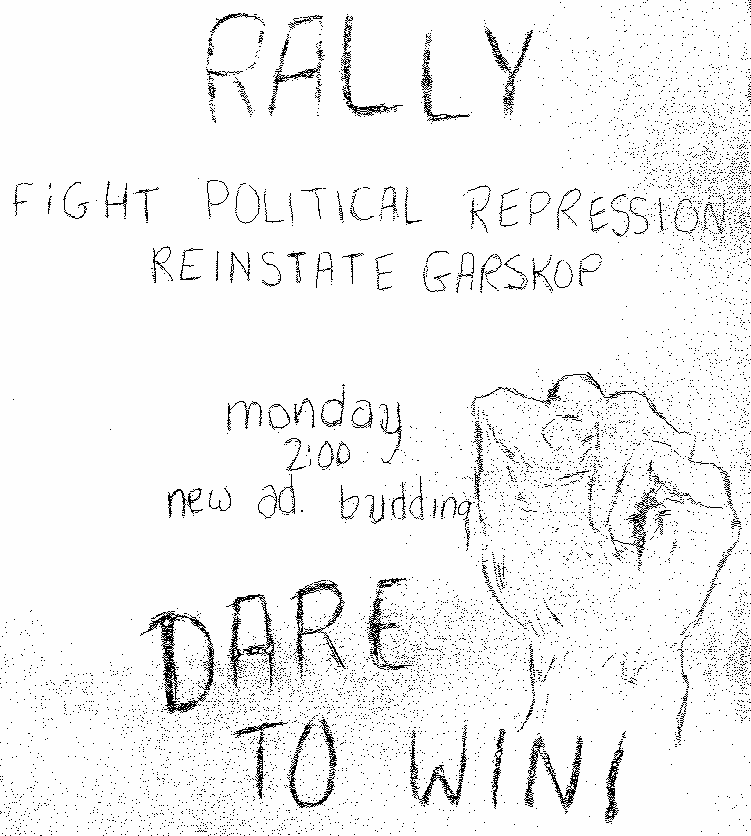 RALLY
FiGHT POLITICAL REPRESSION
REINSTATE GARSKOP
monday
2:00
new ad. budding
DARE
TO WIN!